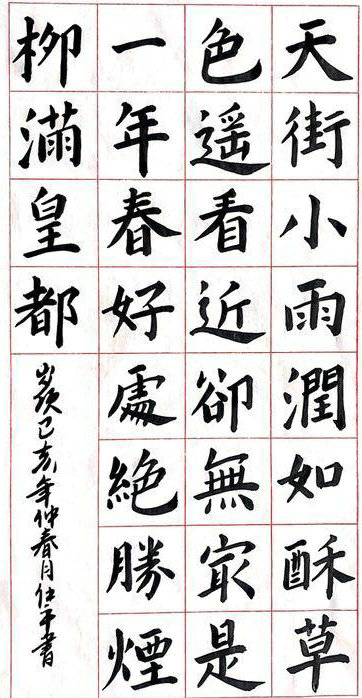 天街小雨潤如酥草
色遥看近卻無冣是
一年春好處絶勝煙
柳滿皇都
歲次己亥年仲春月任平書